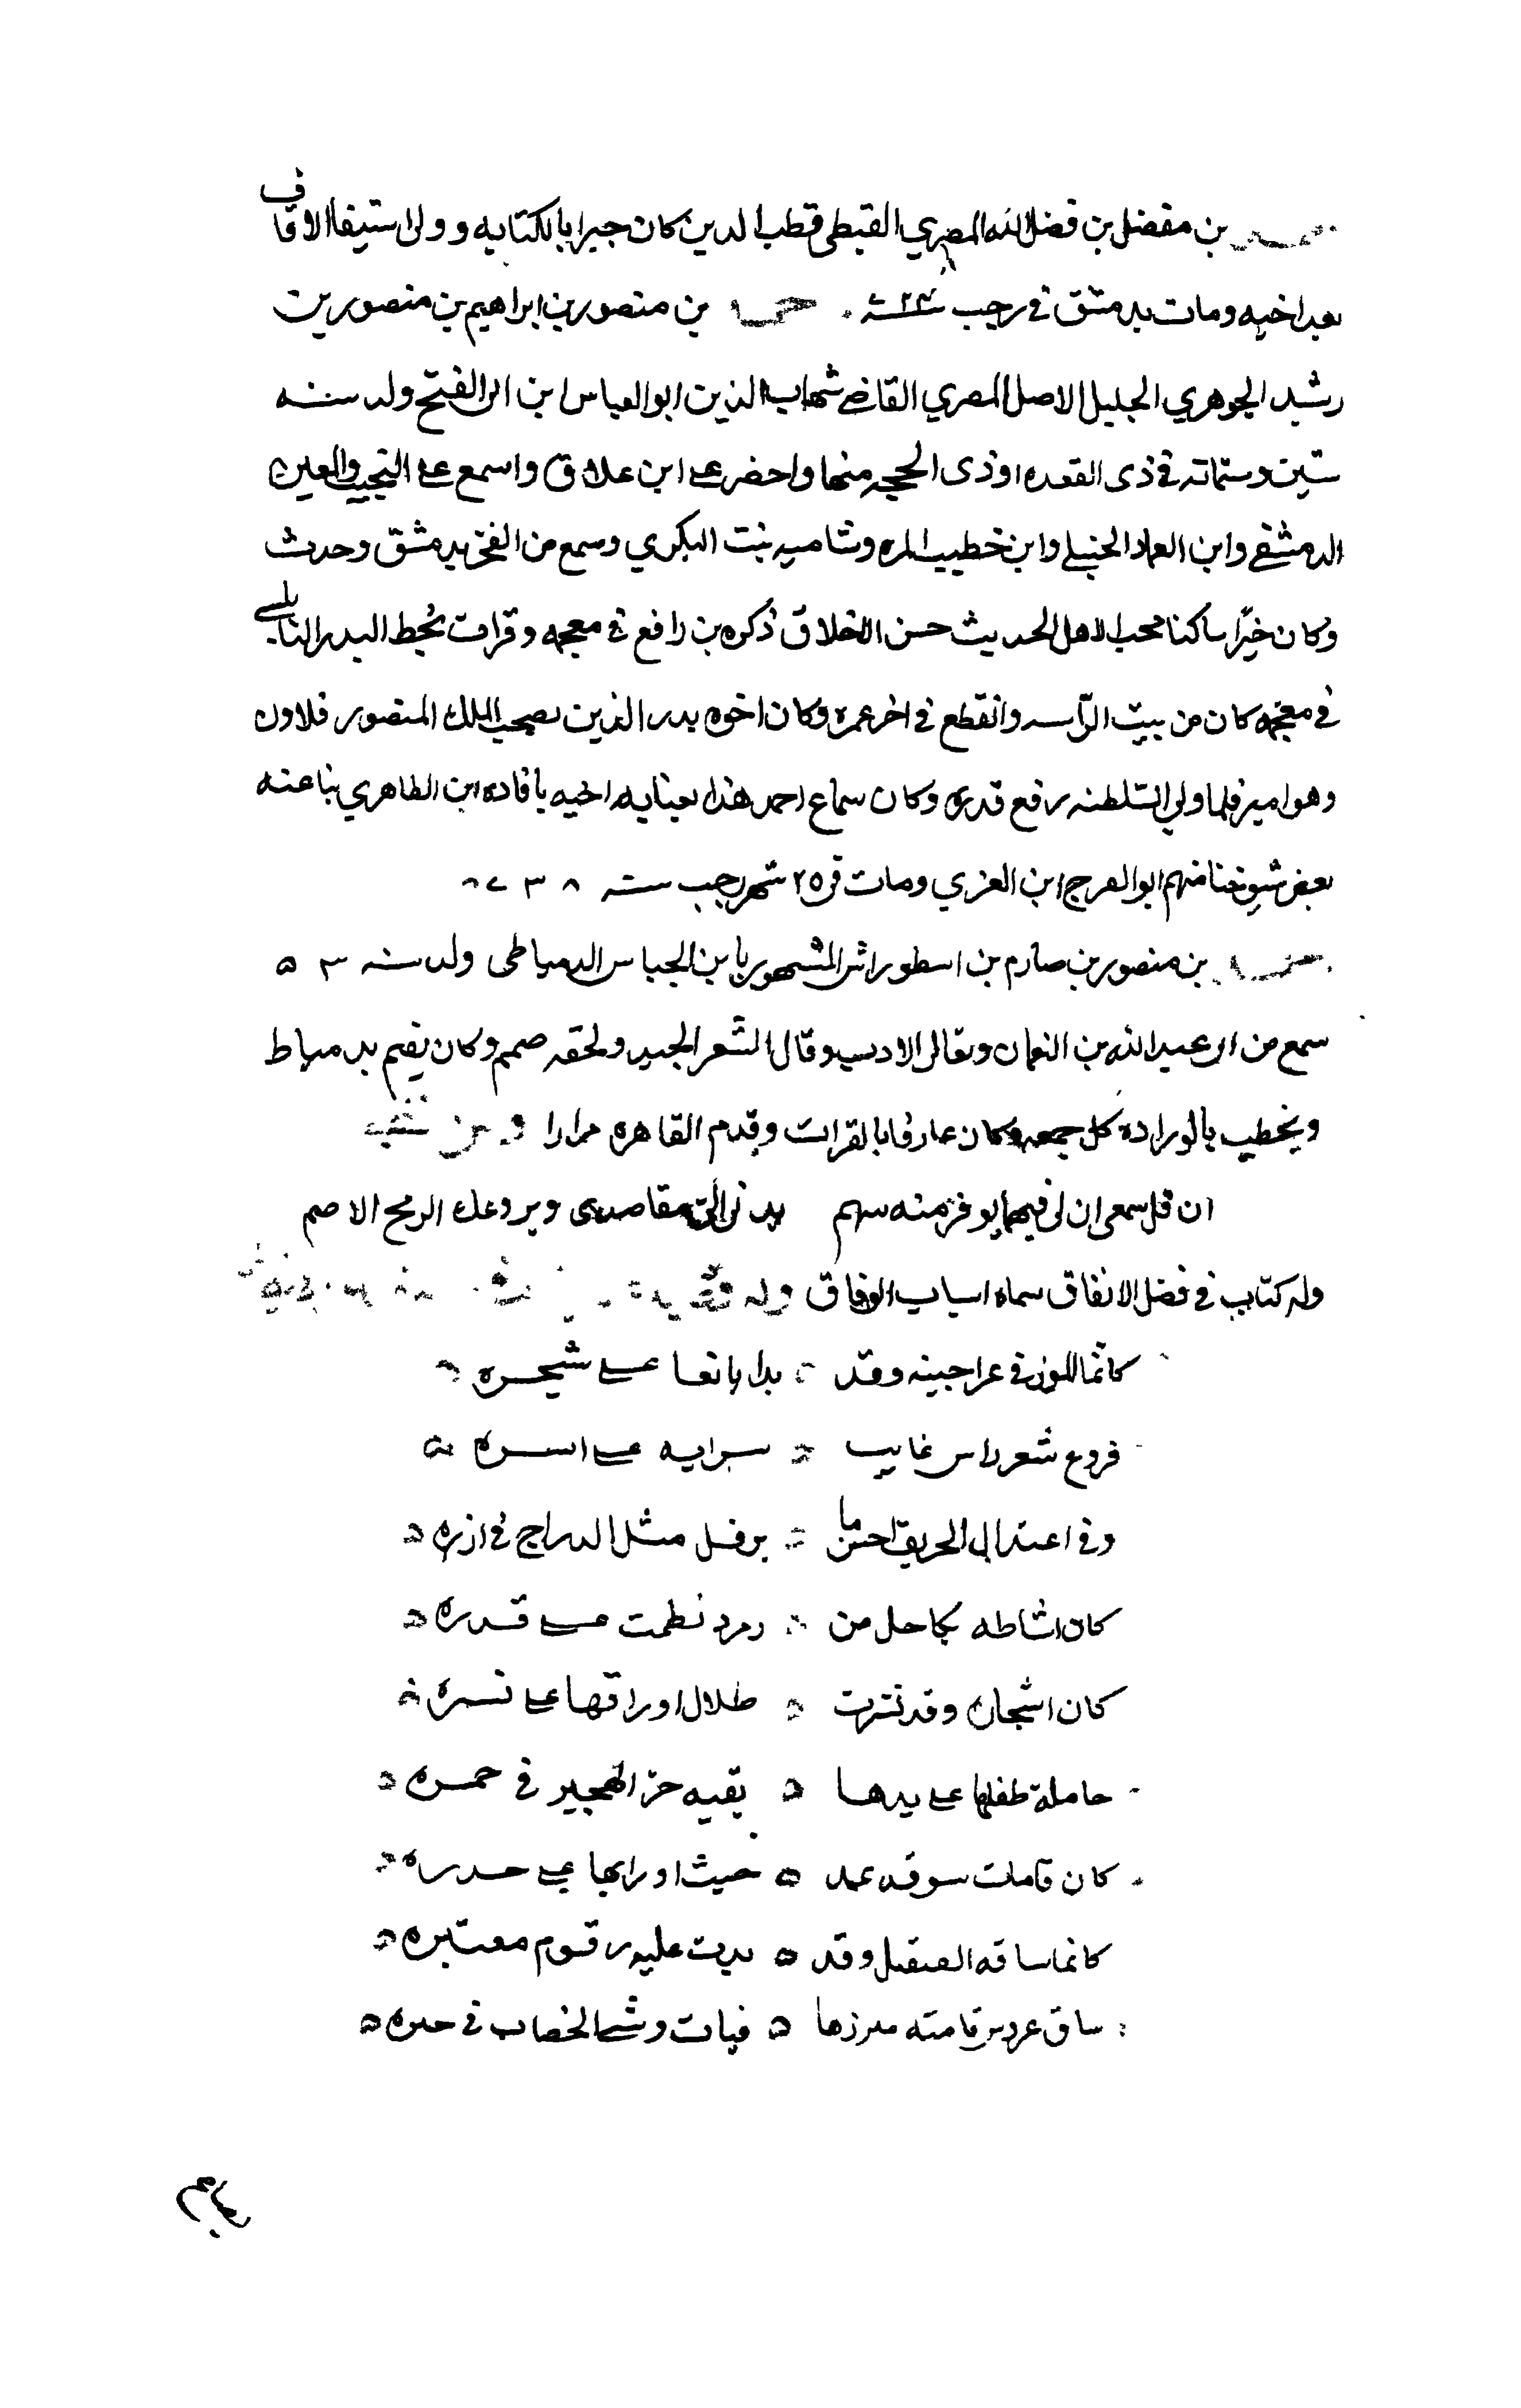 بن مفضل بن فضل الله المصري القبطي قطب الدين كان خبيرا بالكتابه وولى استيفا الاوقاف
بعد اخيه ومات بدمشق في رجب سنة ٧٢٤ بن منصور بن ابراهيم بن منصور بن
رشيد الجوهري الاصل المصري القاضي شهاب الدين ابو العباس ابن ابي الفتح ولد سنه
ستين وستماته في ذى القعده او ذى الحجه منها واحضر على ابن علاق واسمع على النجيب والمعين
الدمشقي وابن العماد الحنبلي وابن خطيب المزه وشاميه بنت البكري وسمع من الفخر بدمشق وحدث
وكان خيرا ساكنا محب لاهل الحديث حسن الاخلاق ذكره بن رافع في معجمه وقرات بخط البدر النابلسي
في معجمه كان من بيت الرآسه وانقطع في اخر عمره وكان اخوه بدر الدين يصحب الملك المنصور قلاون
وهو امير فلما ولي السلطنه رفع قدره وكان سماع احمد هذا بعنايه اخيه بافاده ابن الظاهري ثنا عنه
بعض شيوخنا منهم ابو الفرج ابن الغزي ومات في ٢٥ شهر رجب سنه ٧٣٨
بن منصور بن صارم بن اسطوراش المشهور بابن الجباس الدمياطى ولد سنه ٥٣
سمع من ابى عبد الله بن النعمان وتعانى الادب وقال الشعر الجيد ولحقه صمم وكان يقيم بدمياط
ويخطب بالوراده كل جمعه وكان عارفا بالقرات وقدم القاهره مرارا ومن
ان قل سمعى ان لى فهما يوفر منه سهم يدنى الى مقاصدى ويروعك الرمح الاصم
وله كتاب في فضل الانفاق سماه اسباب الوفاق وله
كانما اللوز في عراجينه وقد بدا يانعا على شجره
فروع شعر راس غايب على اسره
وفي اعتدال احسن ما يرفل مثل الدراج في ازره
كان امشاطه مكاحل من زمرد نظمت على قدره
كان اشجاره وقد نشرت ظلال اوراقها على
حاملة طفلها على يدها تقيه حر الهجير في خمره
كان قامات سوقه عمد
كانما ساقه الصقيل وقد بدت عليه رقوم معتبره
ساق عروس فبان وشى الخضاب في حبره